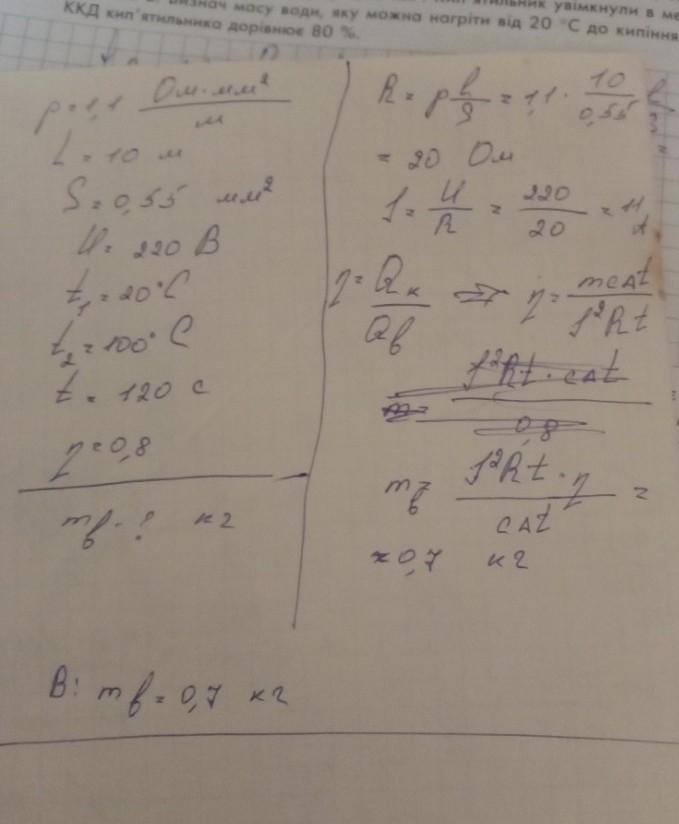 Визнач масу води, яку можна нагріти від 20 °C до кипіння
ККД кип'ятильника дорівнює 80 %.
ρ = 1,1 Ом·мм²/м
L = 10 м
S = 0,55 мм²
U = 220 В
t₁ = 20°C
t₂ = 100°C
t = 120 с
η = 0,8
mв - ? кг
R = ρ l/S = 1,1 · 10/0,55
= 20 Ом
I = U/R = 220/20 = 11 A
η = Qк/Qв => η = mcΔt/I²Rt
m = I²Rt · cΔt/0,8
mв = I²Rt · η/cΔt =
≈ 0,7 кг
В: mв = 0,7 кг